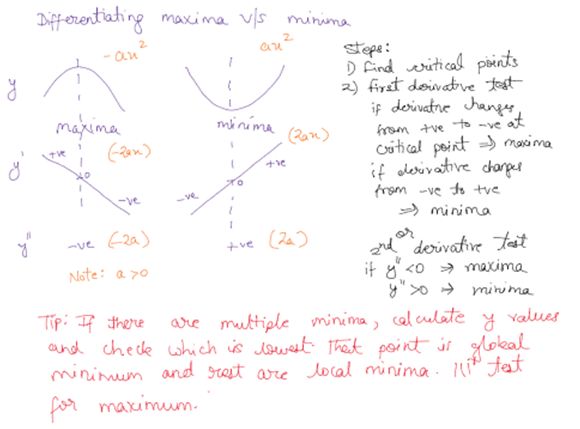 Differentiating maxima v/s minima
-ax²
ax²
y
maxima
minima
y'
+ve
(-2ax)
0
-ve
(2ax)
+ve
0
-ve
y"
-ve (-2a)
+ve (2a)
Note: a>0
Steps:
1) Find critical points
2) First derivative test
if derivative changes
from +ve to -ve at
critical point ⇒ maxima
if derivative changes
from -ve to +ve
⇒ minima
or
2nd derivative test
if y" <0 ⇒ maxima
y" >0 ⇒ minima
Tip: If there are multiple minima, calculate y values
and check which is lowest. That point is global
minimum and rest are local minima. |||ly test
for maximum.